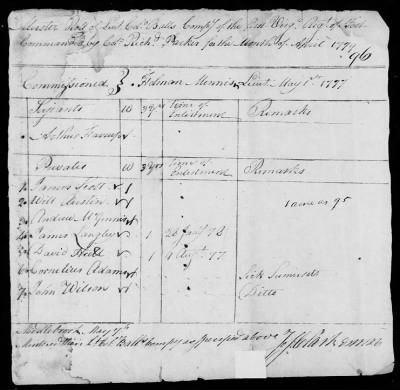 Muster Roll of Lieut. Col. Balls Compy of the 1st Virga. Regt of Foot
Commanded by Col. Richd. Parker for the Month of April 1779
96
Commissioned } Holman Minnis Lieut. May 1st 1777
Serjeants W 3 yrs Time of Enlistment Remarks
Arthur
Privates W 3 yrs Time of Enlistment Remarks
1 James Scott 1
2 Will 1 as 95
3 Andrew McGinnis
4 James Langley 1 26 78
5 David 1 9 Augt. 77
6 Cornelius Adams Sick Somerset
7 John Wilson Ditto
Middlebrook May 7th
Mustered then Lt. Col. Balls Compy as specified above